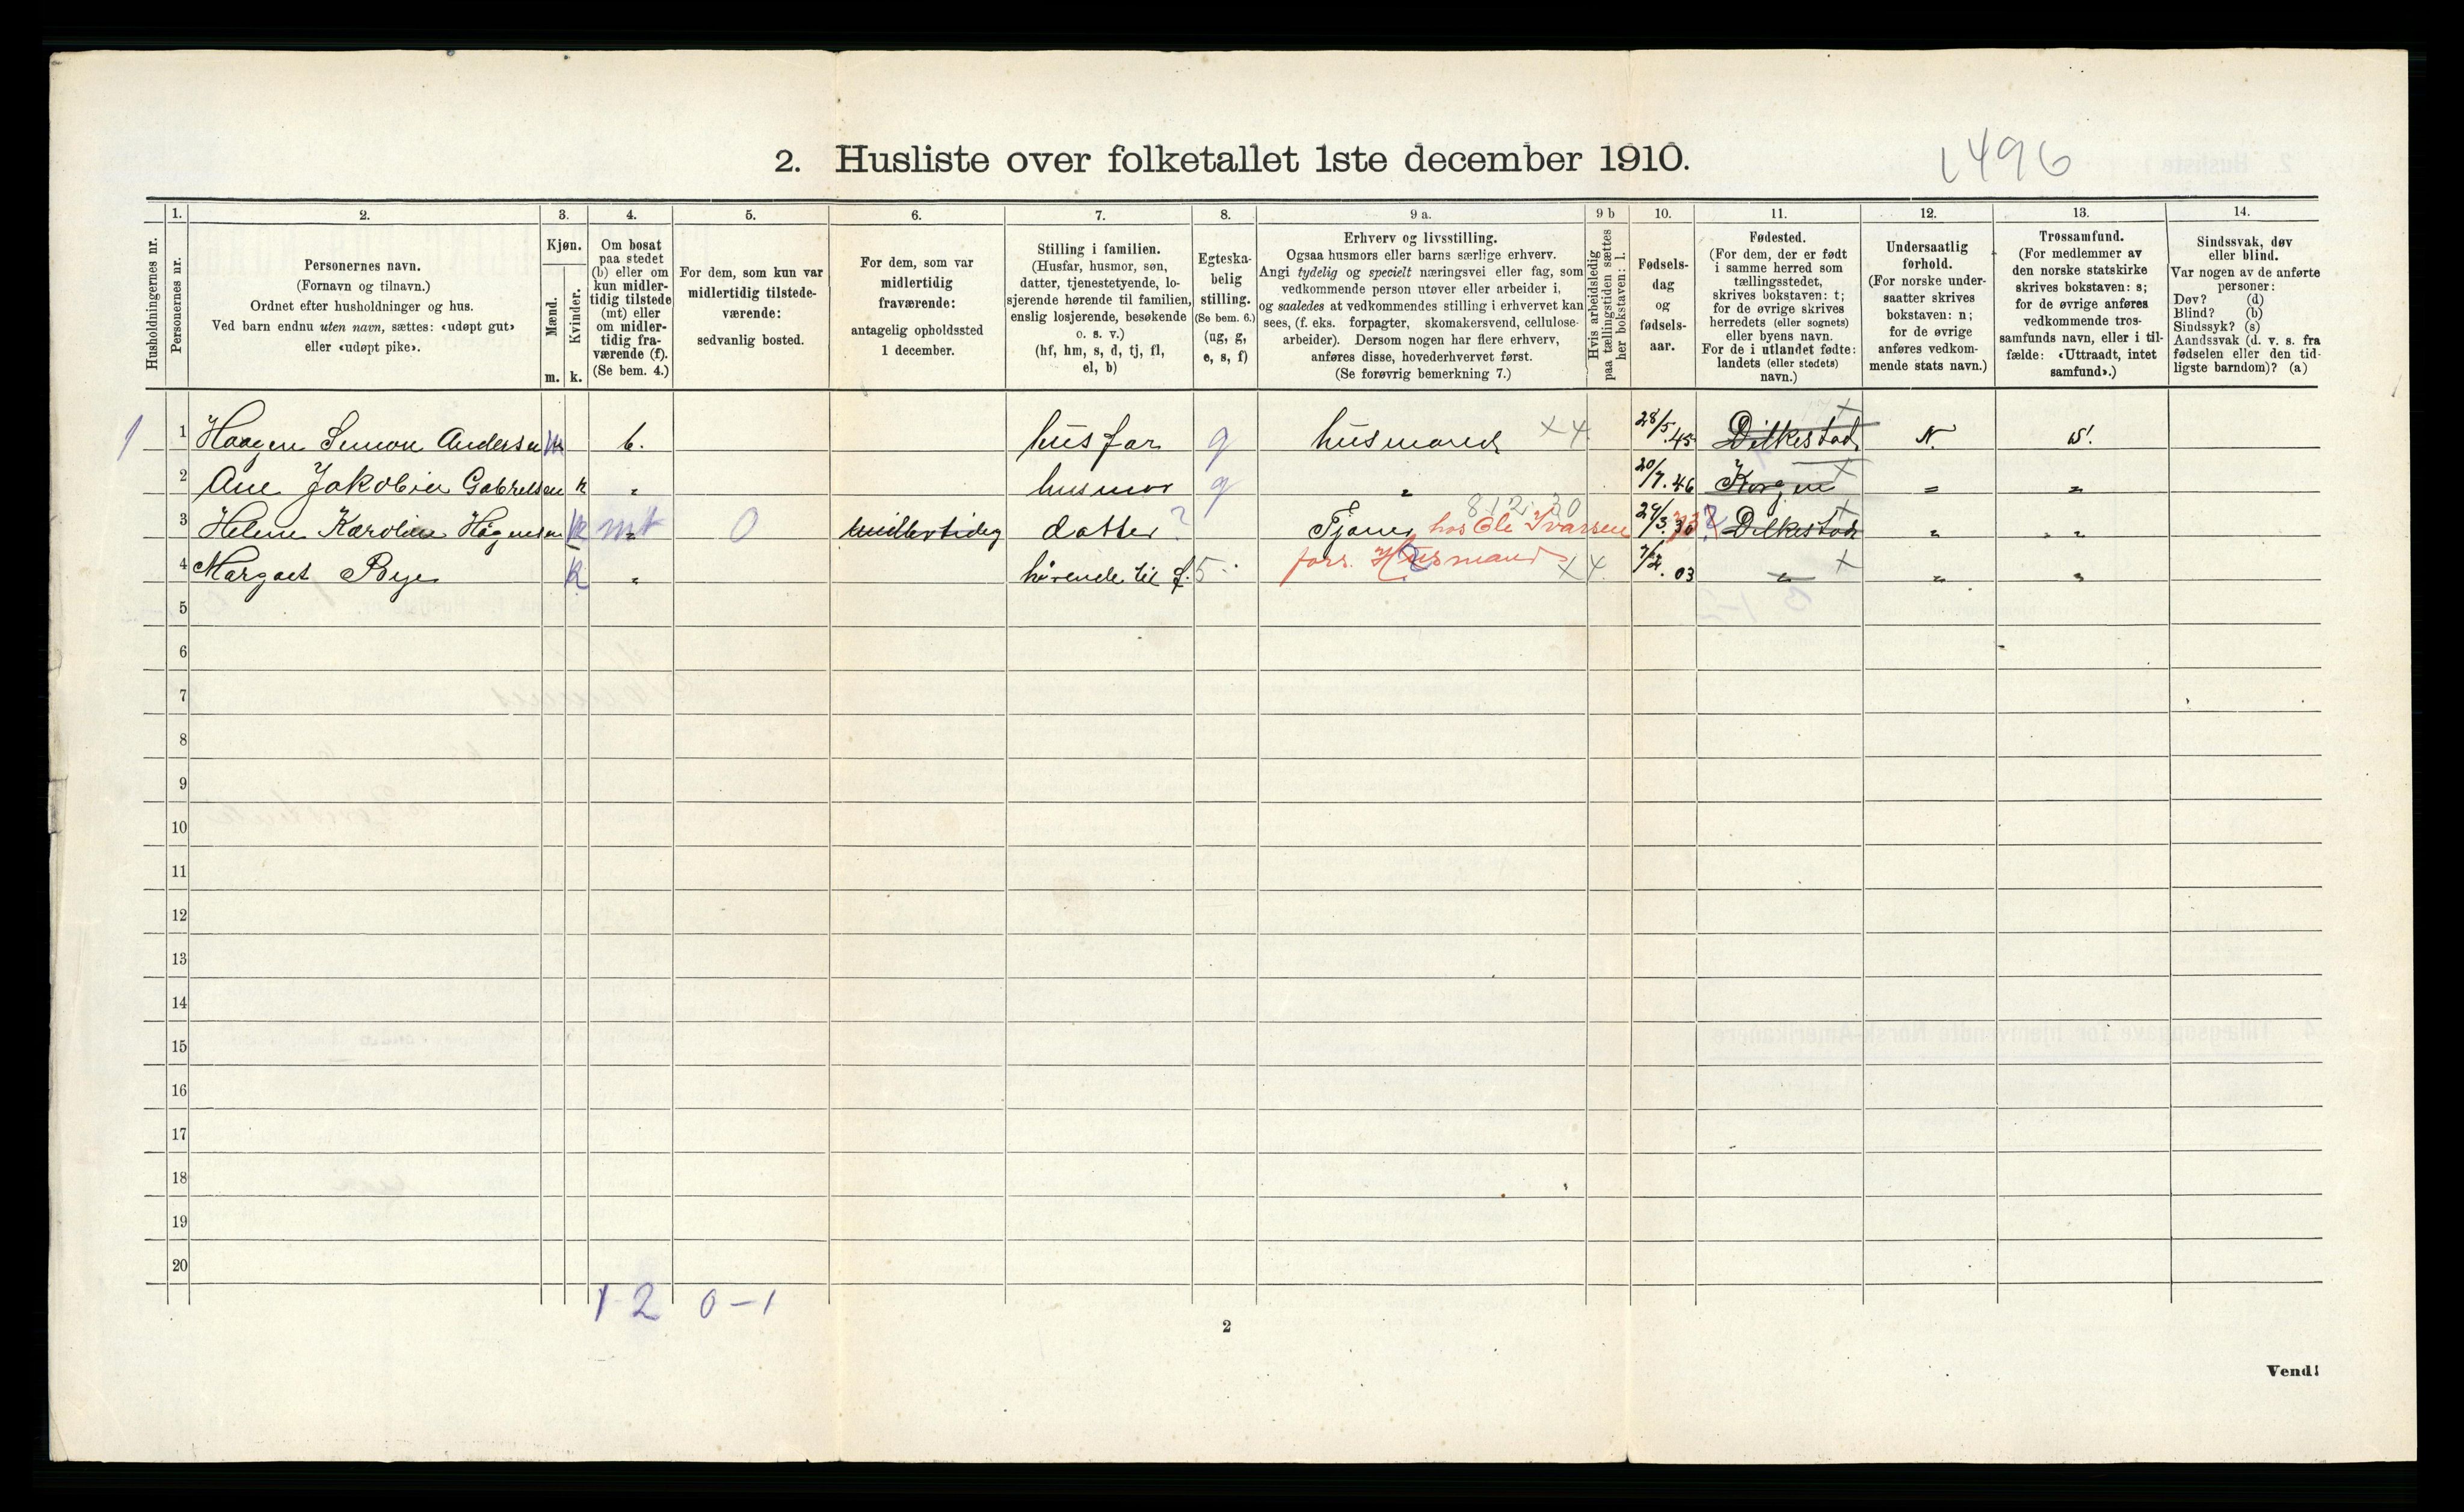 2. Husliste over folketallet 1ste december 1910.
1496
1. 2. 3. 4. 5. 6. 7. 8. 9 a. 9 b 10. 11. 12. 13. 14.
Husholdningernes nr.
Personernes nr.
Personernes navn.
(Fornavn og tilnavn.)
Ordnet efter husholdninger og hus.
Ved barn endnu uten navn, sættes: «udøpt gut»
eller «udøpt pike».
Kjøn.
Mænd.
Kvinder.
m. k.
Om bosat
paa stedet
(b) eller om
kun midler-
tidig tilstede
(mt) eller
om midler-
tidig fra-
værende (f).
(Se bem. 4.)
For dem, som kun var
midlertidig tilstede-
værende:
sedvanlig bosted.
For dem, som var
midlertidig
fraværende:
antagelig opholdssted
1 december.
Stilling i familien.
(Husfar, husmor, søn,
datter, tjenestetyende, lo-
sjerende hørende til familien,
enslig losjerende, besøkende
o. s. v.)
(hf, hm, s, d, tj, fl,
el, b)
Egteska-
belig
stilling.
(Se bem. 6.)
(ug, g,
e, s, f)
Erhverv og livsstilling.
Ogsaa husmors eller barns særlige erhverv.
Angi tydelig og specielt næringsvei eller fag, som
vedkommende person utøver eller arbeider i,
og saaledes at vedkommendes stilling i erhvervet kan
sees, (f. eks. forpagter, skomakersvend, cellulose-
arbeider). Dersom nogen har flere erhverv,
anføres disse, hovederhvervet først.
(Se forøvrig bemerkning 7.)
Hvis arbeidsledig
paa tællingstiden sættes
her bokstaven: l.
Fødsels-
dag
og
fødsels-
aar.
Fødested.
(For dem, der er født
i samme herred som
tællingsstedet,
skrives bokstaven: t;
for de øvrige skrives
herredets (eller sognets)
eller byens navn.
For de i utlandet fødte:
landets (eller stedets)
navn.)
Undersaatlig
forhold.
(For norske under-
saatter skrives
bokstaven: n;
for de øvrige
anføres vedkom-
mende stats navn.)
Trossamfund.
(For medlemmer av
den norske statskirke
skrives bokstaven: s;
for de øvrige anføres
vedkommende tros-
samfunds navn, eller i til-
fælde: «Uttraadt, intet
samfund».)
Sindssvak, døv
eller blind.
Var nogen av de anførte
personer:
Døv? (d)
Blind? (b)
Sindssyk? (s)
Aandssvak (d. v. s. fra
fødselen eller den tid-
ligste barndom)? (a)
1 1 Haagen Simon Andersen m b. husfar g husmand x 4 28/5.45 Dilkestad N. s.
2 Ane Jakobine Gabrielsen k " husmor g " 20/7.46 Korgen " "
3 Helene Karoline Høgensen k mt 0 midlertidig datter ? Tjener hos Ole Ivarssen 24/3. Dilkestad " "
4 Margaet Bye k " hørende til f. fors. Husmand x 4. 7/2.03 " " "
5
6
7
8
9
10
11
12
13
14
15
16
17
18
19
20
1 2 0-1
2
Vend!